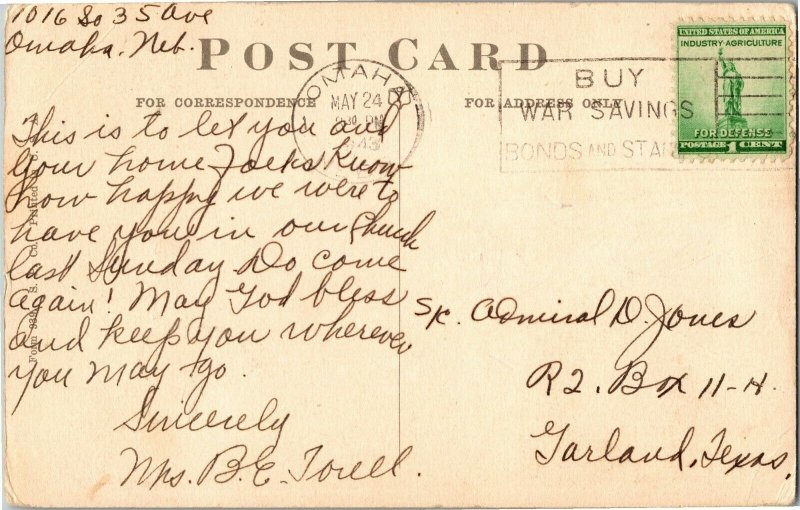 1016 So 35 Ave
Omaha. Neb.
POST CARD
FOR CORRESPONDENCE
FOR ADDRESS ONLY
OMAHA
MAY 24
PM
1943
BUY
WAR SAVINGS
BONDS AND STAMPS
UNITED STATES OF AMERICA
INDUSTRY AGRICULTURE
FOR DEFENSE
POSTAGE 1 CENT
This is to let you and
your home Folks Know
how happy we were to
have you in our Church
last Sunday Do come
again! May God bless
and keep you wherever
you may go.
Sincerely
Mrs. B. E. Torell.
S/c. Admiral D. Jones
R2. Box 11-H.
Garland, Texas,